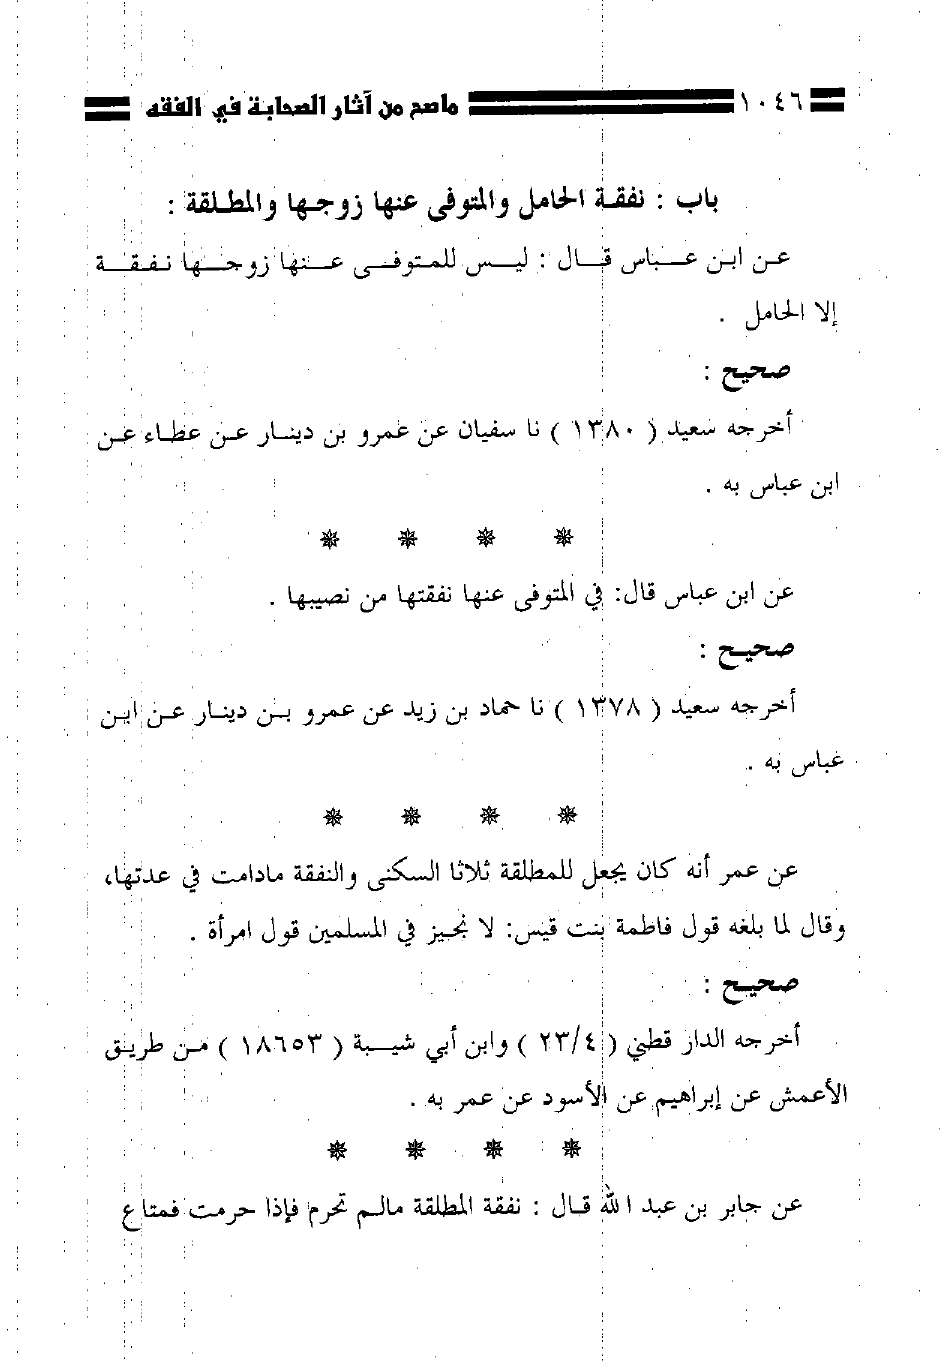 ١٠٤٦ ماصح من آثار الصحابة في الفقه
باب : نفقة الحامل والمتوفى عنها زوجها والمطلقة :
عن ابن عباس قال : ليس للمتوفى عنها زوجها نفقة
إلا الحامل .
صحيح :
أخرجه سعيد ( ١٣٨٠ ) نا سفيان عن عمرو بن دينار عن عطاء عن
ابن عباس به .
عن ابن عباس قال: في المتوفى عنها نفقتها من نصيبها .
صحيح :
أخرجه سعيد ( ١٣٧٨ ) نا حماد بن زيد عن عمرو بن دينار عن ابن
عباس به .
عن عمر أنه كان يجعل للمطلقة ثلاثا السكنى والنفقة مادامت في عدتها،
وقال لما بلغه قول فاطمة بنت قيس: لا نجيز في المسلمين قول امرأة .
صحيح :
أخرجه الدار قطني ( ٢٣/٤ ) وابن أبي شيبة ( ١٨٦٥٣ ) من طريق
الأعمش عن إبراهيم عن الأسود عن عمر به .
عن جابر بن عبد الله قال : نفقة المطلقة مالم تحرم فإذا حرمت فمتاع